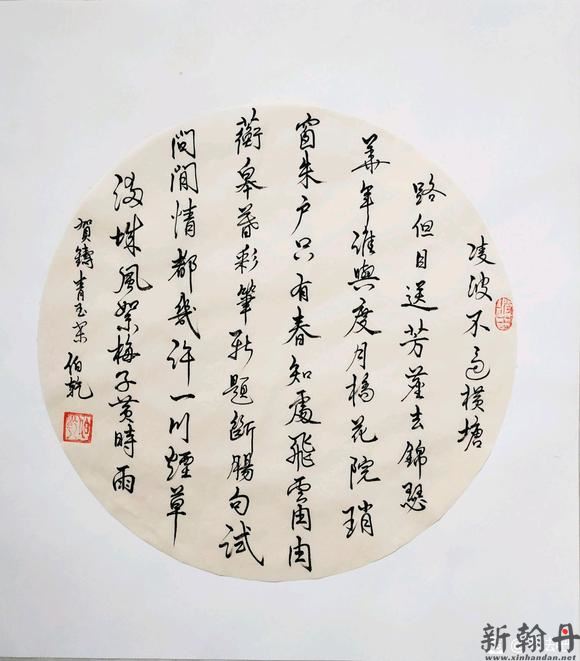 凌波不過橫塘
路但目送芳塵去錦瑟
華年誰與度月橋花院瑣
窗朱戶只有春知處飛雲冉冉
蘅皋暮彩筆新題斷腸句試
問閒情都幾許一川煙草
滿城風絮梅子黃時雨
賀鑄青玉案 伯乾
新翰丹
www.xinhandan.net